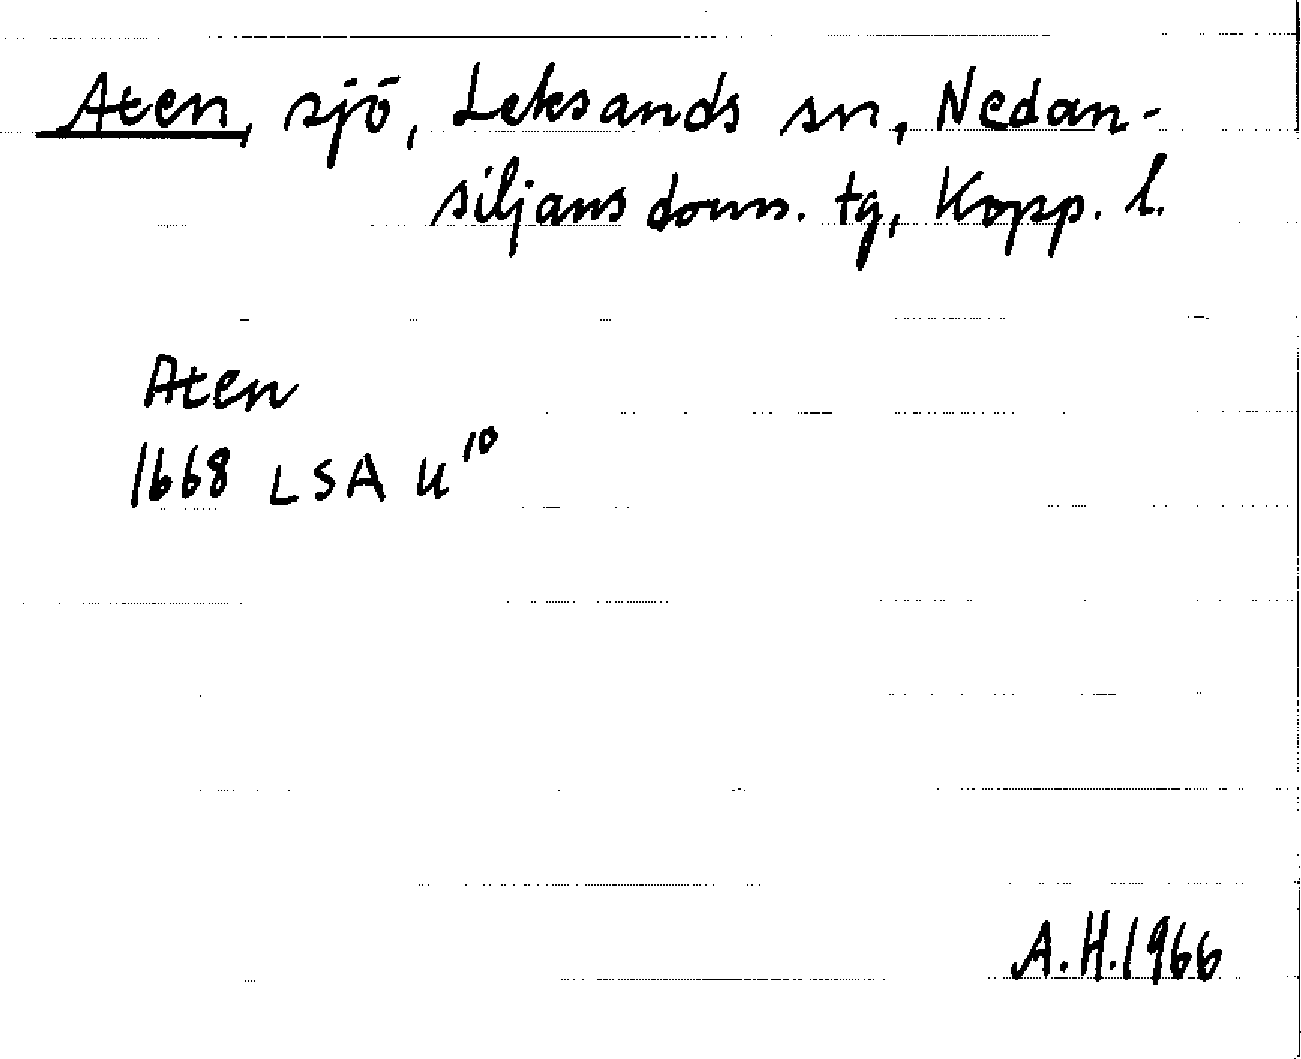 Aten, sjö, Leksands sn, Nedan-
siljans doms. tg, Kopp. l.
Aten
1668 LSA U¹⁰
A.H.1966